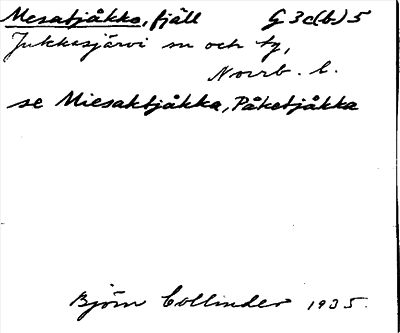 Mesatjåkko, fjäll G 3c(b) 5
Jukkasjärvi sn och tg,
Norrb. l.
se Miesaktjåkka, Påketjåkka
Björn Collinder 1935.